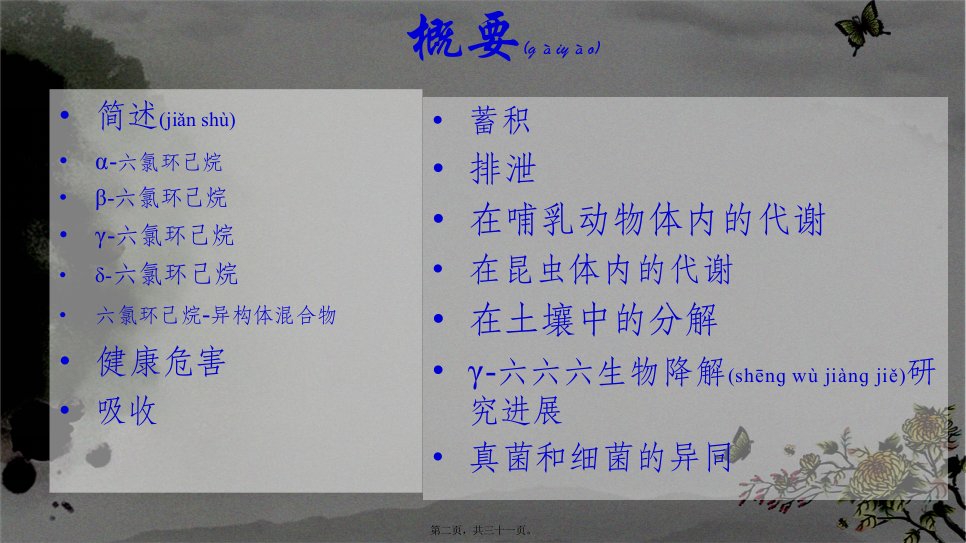 概要(gàiyào)
• 简述(jiǎn shù)
• α-六氯环己烷
• β-六氯环己烷
• γ-六氯环己烷
• δ-六氯环己烷
• 六氯环己烷-异构体混合物
• 健康危害
• 吸收
• 蓄积
• 排泄
• 在哺乳动物体内的代谢
• 在昆虫体内的代谢
• 在土壤中的分解
• γ-六六六生物降解(shēng wù jiàng jiě)研
究进展
• 真菌和细菌的异同
第二页，共三十一页。